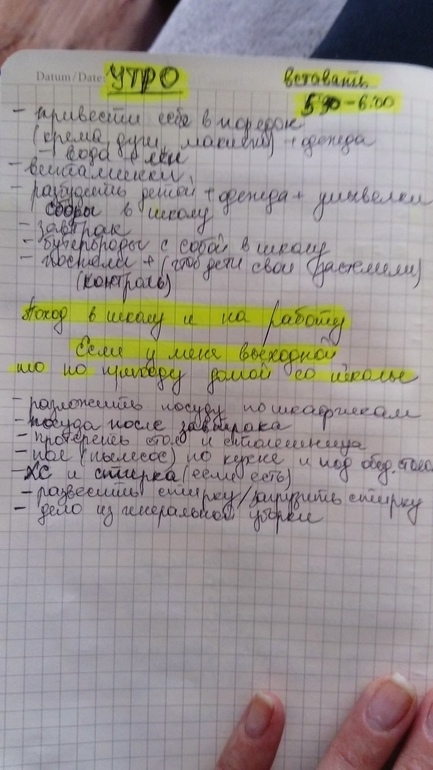 Datum/Date:
УТРО
вставать
5:30-6:00
- привести себя в порядок
(крема, душ, макияж) + одежда
- вода
- витаминки
- разбудить детей + одежда + умывалки
сборы в школу
- завтрак
- бутерброды с собой в школу
- постели + (чтоб дети свои застелили)
(контроль)
Поход в школу и на работу
Если у меня выходной
то по приходу домой со школы
- разложить посуду по шкафчикам
- посуда после завтрака
- протереть стол и столешница
- пол (пылесос) по кухне и под обед. стола
- ХС и стирка (если есть)
- развесить стирку/загрузить стирку
- дело из генеральной уборки